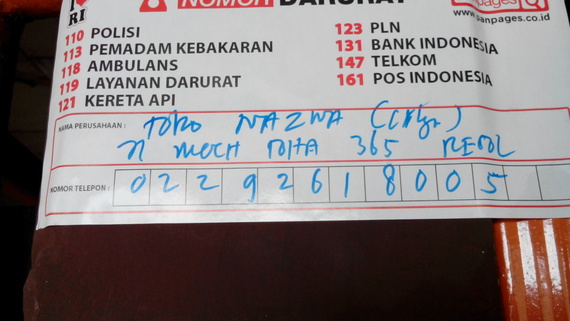 I
RI
NOMOR DARURAT
panpages
www.panpages.co.id
110 POLISI
113 PEMADAM KEBAKARAN
118 AMBULANS
119 LAYANAN DARURAT
121 KERETA API
123 PLN
131 BANK INDONESIA
147 TELKOM
161 POS INDONESIA
NAMA PERUSAHAAN : TOKO NAZWA
MOCH TOHA 365
NOMOR TELEPON : 02292618005